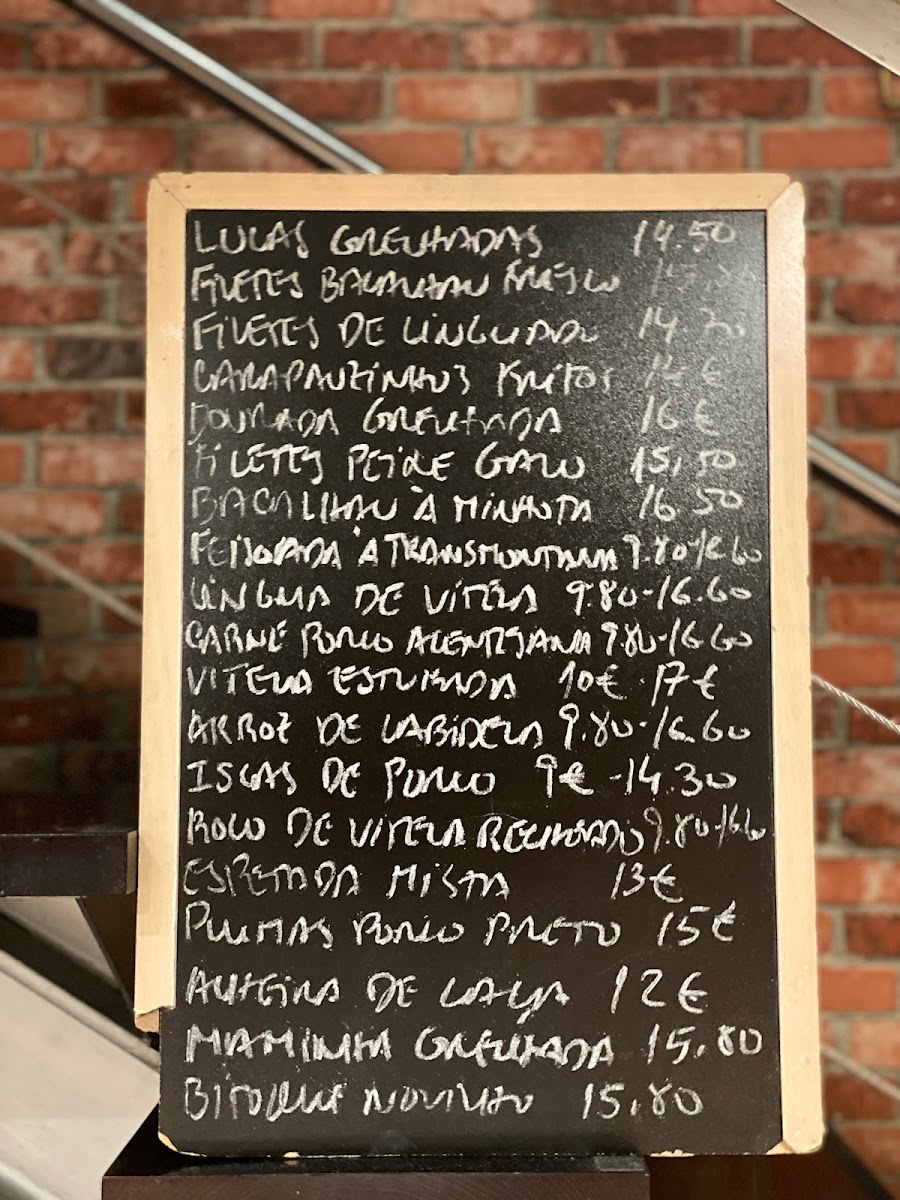 LULAS GRELHADAS 14.50
FILETES BACALHAU FRESCO
FILETES DE LINGUADO 14.20
CARAPAUZINHOS FRITOS 14 €
DOURADA GRELHADA 16 €
FILETES PEIXE GALO 15,50
BACALHAU À MINHOTA 16.50
FEIJOADA À TRANSMONTANA 9.80-16.60
LÍNGUA DE VITELA 9.80-16.60
CARNE PORCO ALENTEJANA 9.80-16.60
VITELA ESTUFADA 10€-17€
ARROZ DE CABIDELA 9.80-16.60
ISCAS DE PORCO 9€-14.30
ROLO DE VITELA RECHEADO 9.80-16.60
ESPETADA MISTA 13€
PLUMAS PORCO PRETO 15€
ALHEIRA DE CAÇA 12€
MAMINHA GRELHADA 15.80
BITOQUE NOVILHO 15.80